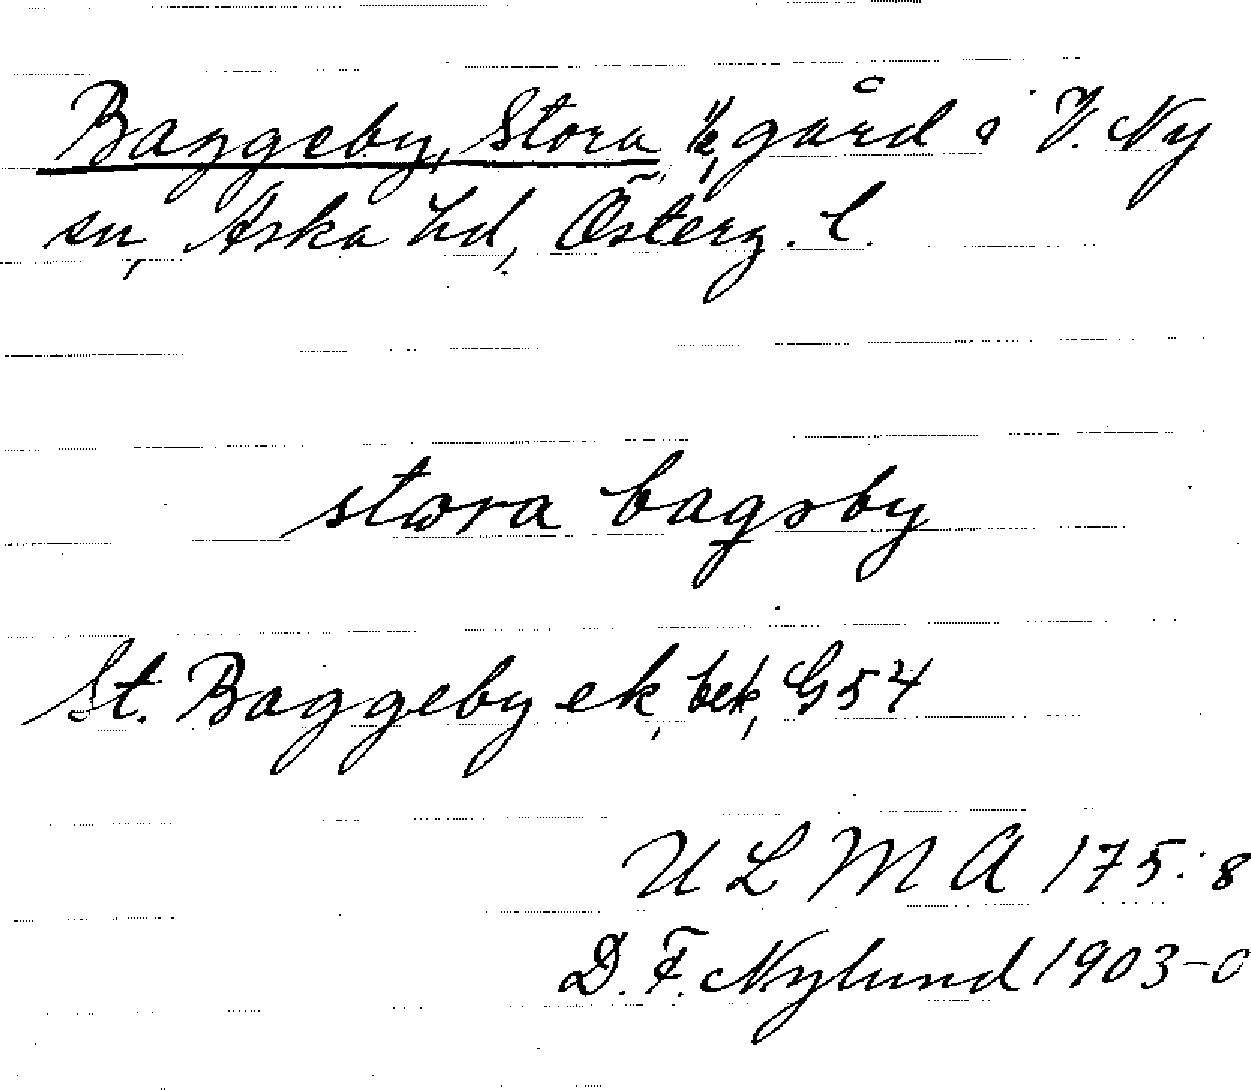 Baggeby, Stora, gård i V. Ny
sn, Aska hd, Österg. l.
stora bagəby
St. Baggeby ek, bek, G54
U L M A 175:8
D. F. Nylund 1903-0